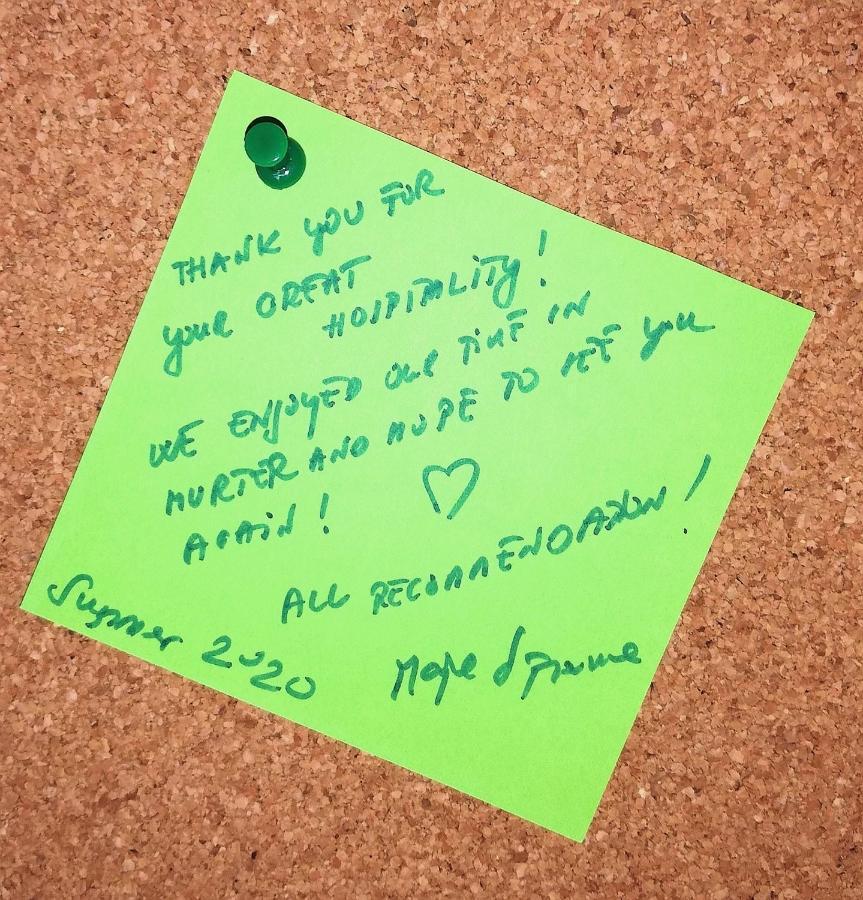 THANK YOU FOR
your GREAT
HOSPITALITY!
WE ENJOYED our TIME IN
MURTER AND HOPE TO SEE you
AGAIN! ♡
ALL RECOMMENDATION!
Summer 2020